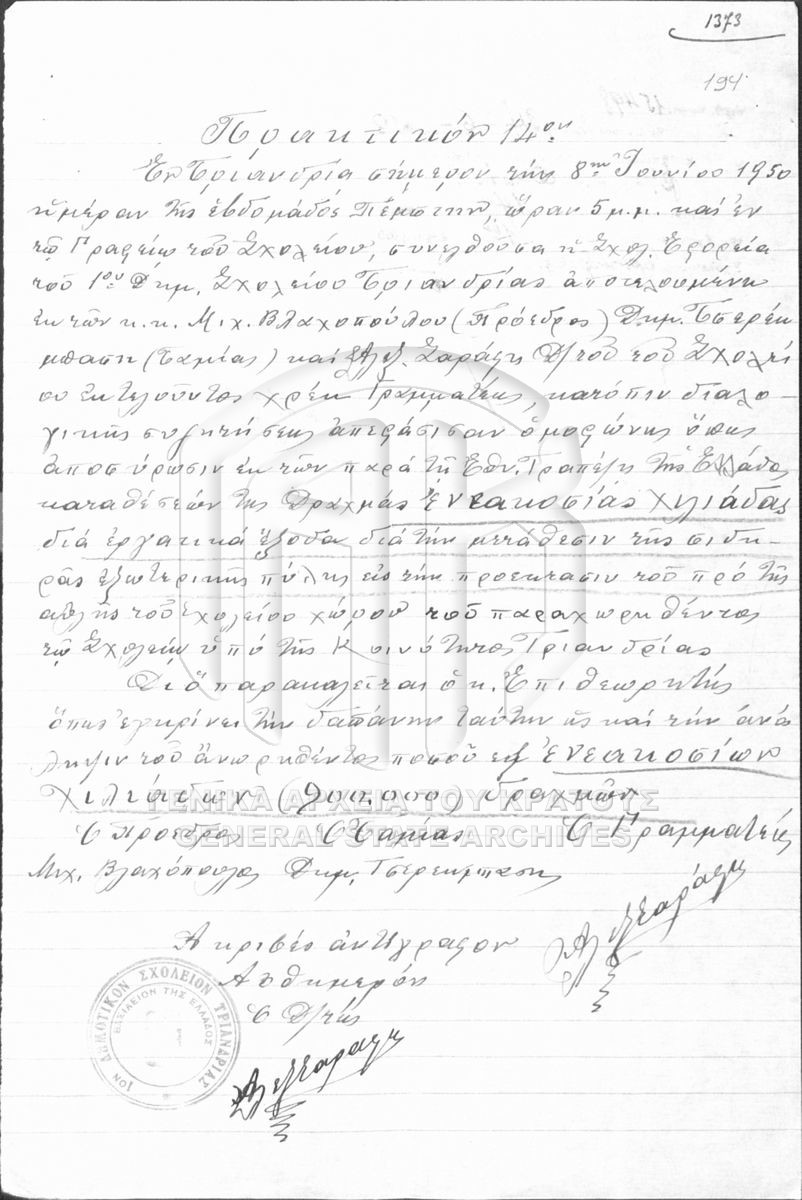 1373
194
Πρακτικόν 14ον
Ἐν Τριανδρία σήμερον τήν 8ην Ἰουνίου 1950
ἡμέραν τῆς ἑβδομάδος Πέμπτην, ὥραν 5 μ.μ. καί ἐν
τῷ Γραφείῳ τοῦ Σχολείου, συνελθοῦσα ἡ Σχολ. Ἐφορεία
τοῦ 1ου Δημ. Σχολείου Τριανδρίας ἀποτελουμένη
ἐκ τῶν κ.κ. Μιχ. Βλαχοπούλου (Πρόεδρος) Δημ. Τσερέκ
μπαση (Ταμίας) καί Ἀλεξ. Σαράφη Δ/τοῦ τοῦ Σχολεί
ου ἐκτελοῦντος χρέη Γραμματέως, κατόπιν διαλο-
γικῆς συζητήσεως ἀπεφάσισαν ὁμοφώνως ὅπως
ἀποσύρωσιν ἐκ τῶν παρά τῇ Ἐθν. Τραπέζῃ τῆς Ἑλλάδος
καταθέσεών της Δραχμάς ἐνεακοσίας χιλιάδας
διά ἐργατικά ἔξοδα διά τήν μετάθεσιν τῆς σιδη-
ρᾶς ἐξωτερικῆς πύλης εἰς τήν προέκτασιν τοῦ πρό τῆς
αὐλῆς τοῦ Σχολείου χώρου τοῦ παραχωρηθέντος
τῷ Σχολείῳ ὑπό τῆς Κοινότητος Τριανδρίας
Δι' ὅ παρακαλεῖται ὁ κ. Ἐπιθεωρητής
ὅπως ἐγκρίνει τήν δαπάνην ταύτην ὡς καί τήν ἀνά
ληψιν τοῦ ἄνω ρηθέντος ποσοῦ ἐξ ἐνεακοσίων
χιλιάδων (900.000) δραχμῶν
Ὁ Πρόεδρος Ὁ Ταμίας Ὁ Γραμματεύς
Μιχ. Βλαχόπουλος Δημ. Τσερεκμπασης
Ἀκριβές ἀντίγραφον
Αὐθημερόν
Ὁ Δ/τής
1ον ΔΗΜΟΤΙΚΟΝ ΣΧΟΛΕΙΟΝ ΤΡΙΑΝΔΡΙΑΣ
ΒΑΣΙΛΕΙΟΝ ΤΗΣ ΕΛΛΑΔΟΣ
ΓΕΝΙΚΑ ΑΡΧΕΙΑ ΤΟΥ ΚΡΑΤΟΥΣ
GENERAL STATE ARCHIVES